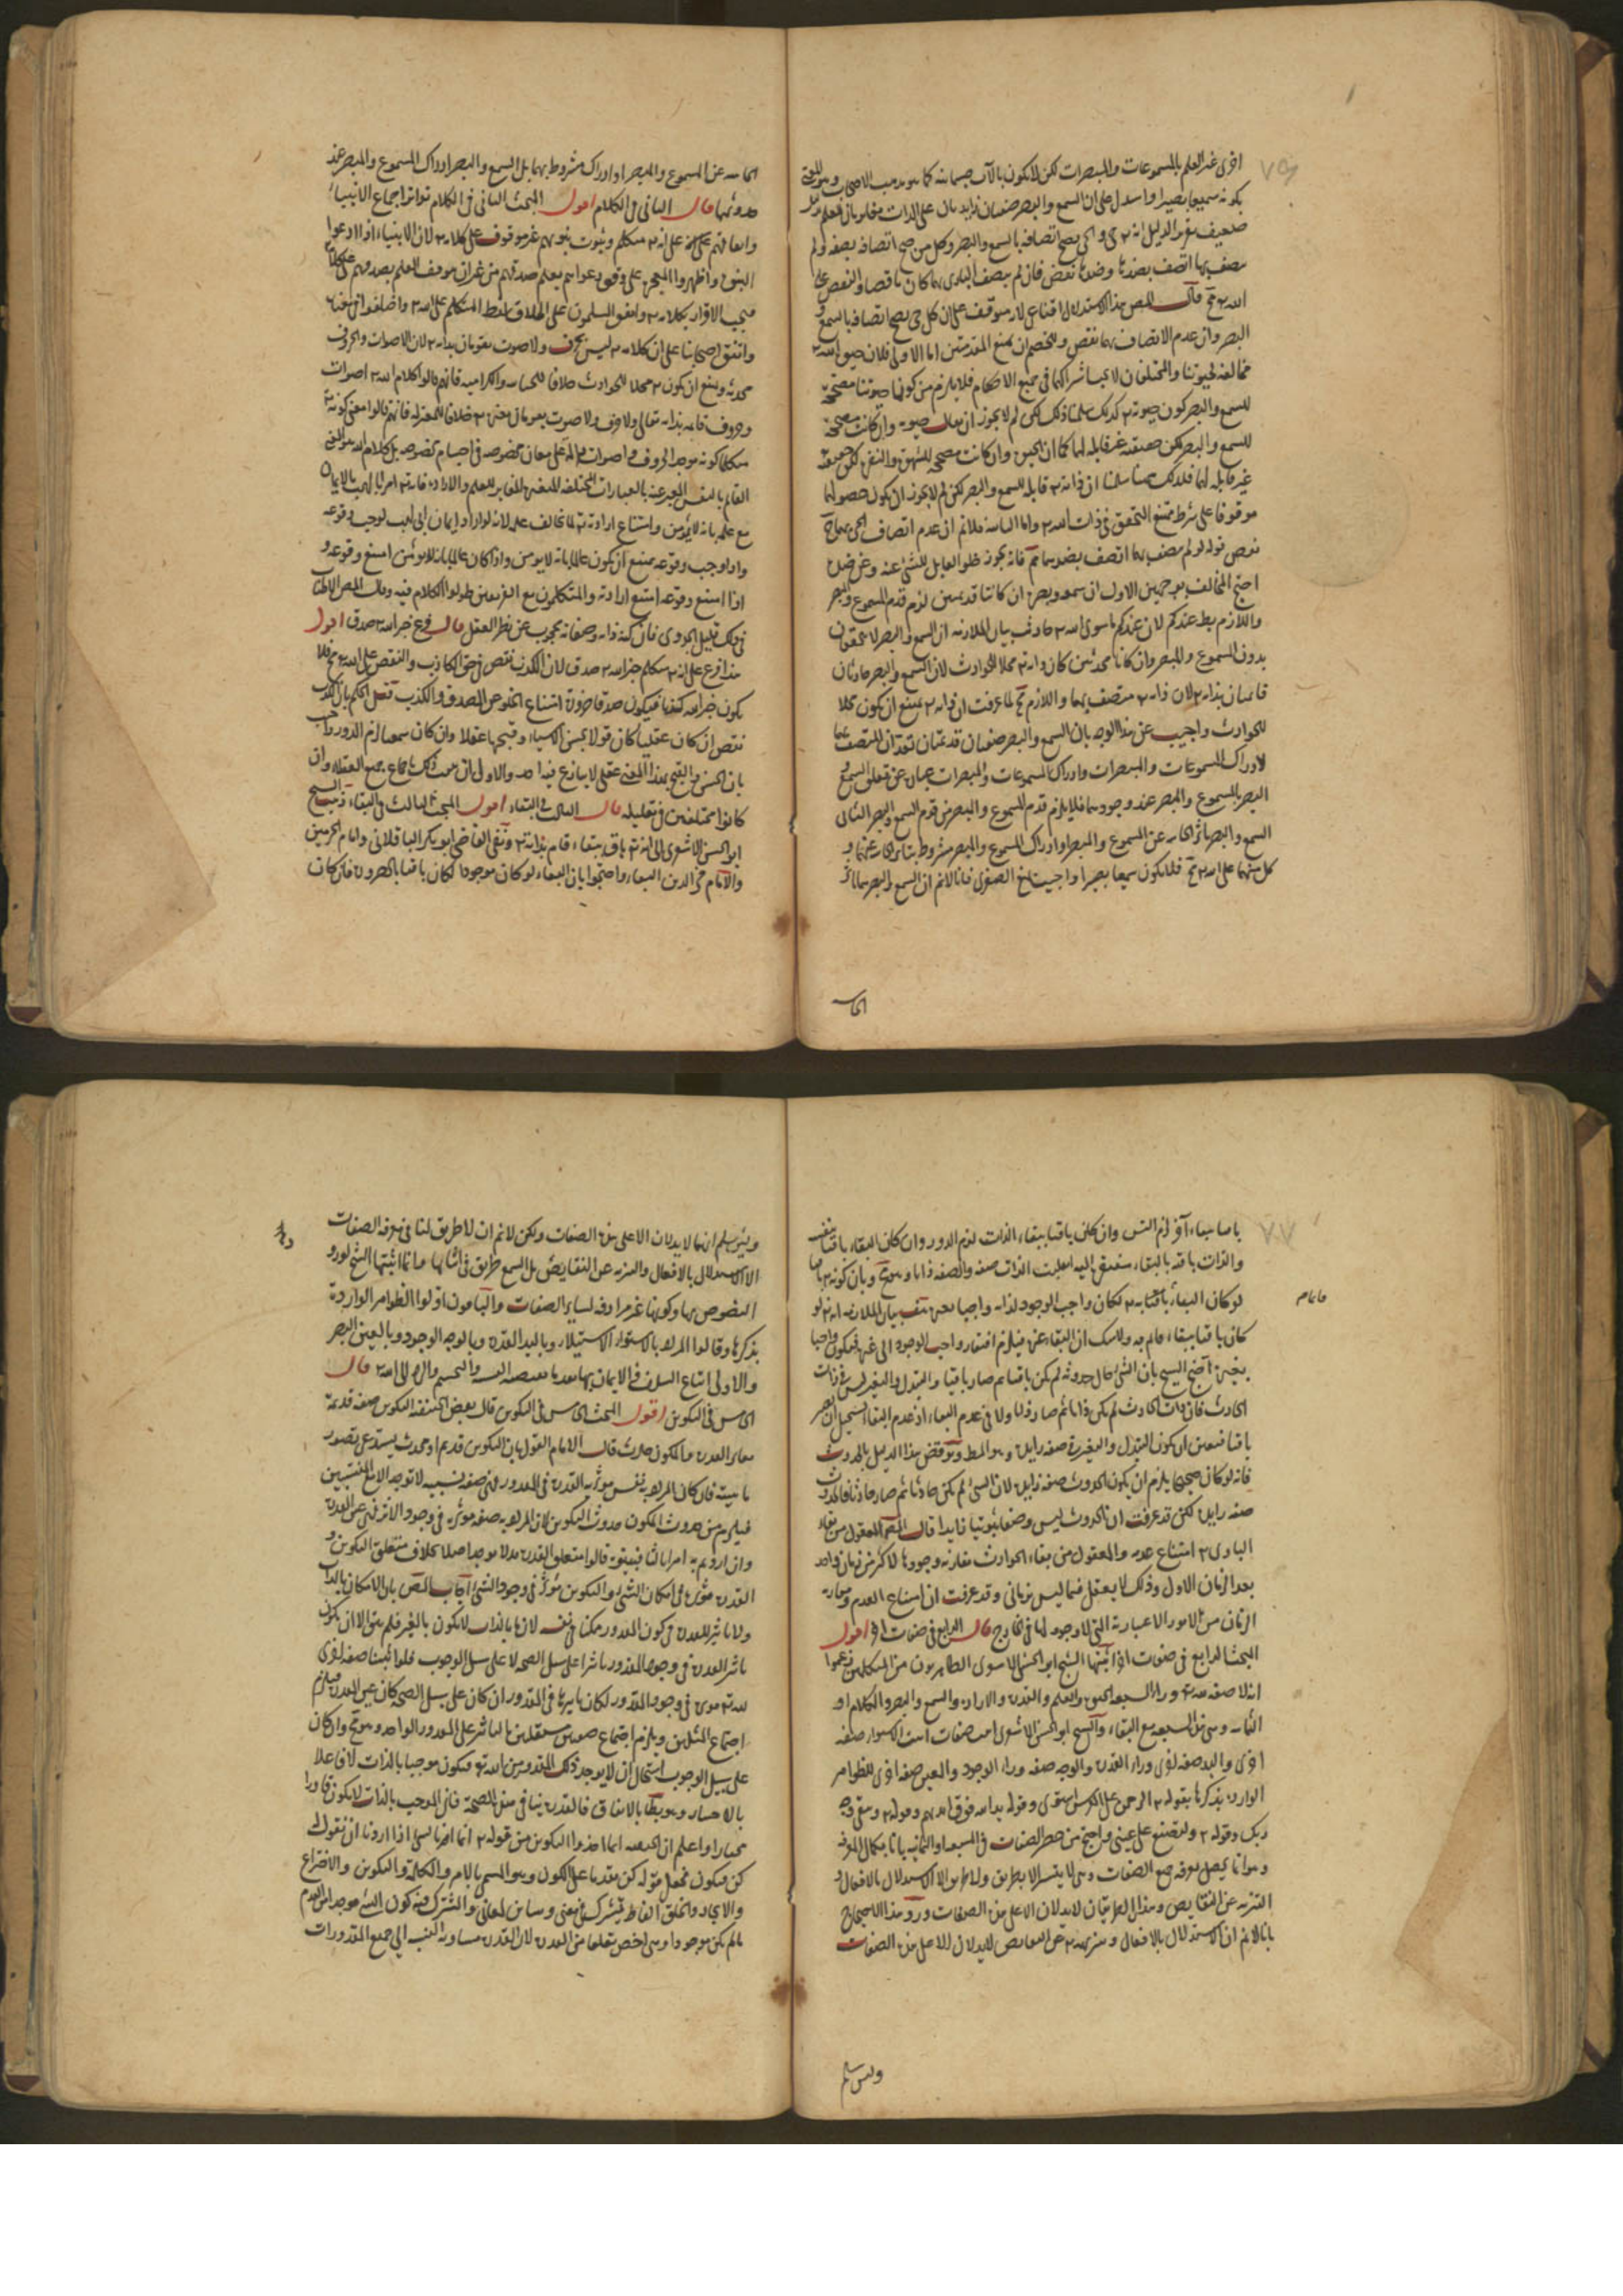 ٧٥
اخرى غير العلم بالمسموعات والمبصرات لكن لا يكون بالآت جسمانية كما هو مذهب الاصحاب وهو المعنى
بكونه سميعا بصيرا واستدل على ان السمع والبصر صفتان زايدتان على الذات مغايرتان للعلم
ضعيف تقرير الدليل انه تع حي والحي يصح اتصافه بالسمع والبصر وكل من صح اتصافه بصفة ولم
يتصف بها اتصف بضدها وضدها نقص فان لم يتصف الباري بهما كان ناقصا والنقص على
الله تع مح قال المص هذا الاستدلال اقناعي لانه موقوف على ان كل حي يصح اتصافه بالسمع و
البصر وان عدم الاتصاف بهما نقص وللخصم ان يمنع المقدمتين اما الاولى فلان حيوة الله تع
مخالفة لحيوتنا والمختلفان لا يجب اشتراكهما في جميع الاحكام فلا يلزم من كون حيوتنا مصححة
للسمع والبصر كون حيوته تع كذلك سلمنا ذلك لكن لم لا يجوز ان يقال حيوته وان كانت مصححة
للسمع والبصر لكن حقيقته غير قابلة لهما كما ان الحيوة وان كانت مصححة للشهوة والنفرة لكن حقيقته
غير قابلة لهما فكذلك ههنا سلمنا ان ذاته تع قابلة للسمع والبصر لكن لم لا يجوز ان يكون حصولهما
موقوفا على شرط ممتنع التحقق في ذات الله تع واما الثانية فلا نم ان عدم اتصاف الحي بهما
نقص قوله لو لم يتصف بهما اتصف بضدهما مم فانه يجوز خلو القابل للشئ عنه وعن ضده
احتج المخالف بوجهين الاول ان سمعه وبصره ان كانتا قديمتين لزم قدم المسموع والمبصر
واللازم بط عندكم لان عندكم ما سوى الله تع حادث بيان الملازمة ان السمع والبصر لا يتحققان
بدون المسموع والمبصر وان كانا محدثين كان ذاته تع محلا للحوادث لان السمع والبصر حادثان
قائمان بذاته تع لان ذاته تع متصف بهما واللازم مح لما عرفت ان ذاته تع يمتنع ان يكون محلا
للحوادث واجيب عن هذا الوجه بان السمع والبصر صفتان قديمتان تعدان المتصف بهما
لادراك المسموعات والمبصرات وادراك المسموعات والمبصرات عبارة عن تعلق السمع و
البصر بالمسموع والمبصر عند وجودهما فلا يلزم قدم المسموع والمبصر من قدم السمع والبصر الثاني
السمع والبصر تاثر الحاسة عن المسموع والمبصر او ادراك المسموع والمبصر مشروط بتاثر الحاسة عنهما و
كل منهما على الله تع مح فلا يكون سميعا بصيرا واجيب بمنع الصغرى فانا لا نم ان السمع والبصر هما تاثر
الحاسة
الحاسة عن المسموع والمبصر او ادراك مشروط بهما بل السمع والبصر ادراك المسموع والمبصر عند
حدوثهما قال الثاني في الكلام اقول البحث الثاني في الكلام تواتر اجماع الانبياء
واتفاقهم على انه تع متكلم وثبوت نبوتهم غير موقوف على كلامه تع لان الانبياء اذا ادعوا
النبوة واظهروا المعجزة على وفق دعواهم يعلم صدقهم من غير ان يتوقف العلم بصدقهم على كلامه
فيجب الاقرار بكلامه تع واتفق المسلمون على اطلاق لفظ المتكلم على الله تع واختلفوا في معناه
واتفق اصحابنا على ان كلامه تع ليس بحرف ولا صوت يقومان بذاته تع لان الاصوات والحروف
محدثة ويمتنع ان يكون تع محلا للحوادث خلافا للحنابلة والكرامية فانهم قالوا كلام الله تع اصوات
وحروف قايمة بذاته تعالى ولا حرف ولا صوت يقومان بغيره تع خلافا للمعتزلة فانهم قالوا معنى كونه تع
متكلما كونه موجدا لحروف واصوات دالة على معان مخصوصة في اجسام مخصوصة بل كلام الله هو المعنى
القائم بالنفس المعبر عنه بالعبارات المختلفة المتغيرة المغاير للعلم والارادة فانه تع امر ابا لهب بالايمان
مع علمه بانه لا يؤمن وامتناع ارادته تع لما يخالف علمه لانه لو اراد ايمان ابي لهب لوجب وقوعه
ولو وجب وقوعه يمتنع ان يكون عالما بانه لا يومن واذا كان عالما بانه لا يومن امتنع وقوعه و
اذا امتنع وقوعه امتنع ارادته والمتكلمون مع الفريقين طولوا الكلام فيه وقال المص الاطناب
في ذلك قليل الجدوى فان كنه ذاته وصفاته محجوب عن نظر العقل قال فرع خبر الله تع صدق اقول
هذا فرع على انه تع متكلم خبر الله تع صدق لان الكذب نقص في حق الكاذب والنقص على الله تع مح فلا
يكون خبر الله كذبا فيكون صدقا ضرورة امتناع الخلو عن الصدق والكذب قيل الحكم بان الكذب
نقص ان كان عقليا كان قولا بحسن الاشياء وقبحها عقلا وان كان سمعيا لزم الدور واجيب
بان الحسن والقبح بهذا المعنى عقلي لا ينازع فيه احد والاولى ان يثبت ذلك باجماع جميع العقلاء وان
كانوا مختلفين في تعليله قال الثالث في البقاء اقول المبحث الثالث في البقاء ذهب الشيخ
ابو الحسن الاشعري الى انه تع باق ببقاء قام بذاته تع ونفى القاضي ابو بكر الباقلاني وامام الحرمين
والامام فخر الدين البقاء واحتجوا بان البقاء لو كان موجودا لكان باقيا بالضرورة فان كان
٧٧
باقيا ببقاء آخر لزم التس وان كان باقيا ببقاء الذات لزم الدور وان كان البقاء باقيا بنفسه
والذات باقية بالبقاء مفتقرة اليه انقلبت الذات صفة والصفة ذاتا وهو مح وبان كونه تع باقيا
لو كان البقاء قايما به تع لكان واجب الوجود لذاته واجبا بغيره هف بيان الملازمة انه تع لو
كان باقيا ببقاء قائم به ولا شك ان البقاء غيره فيلزم افتقار واجب الوجود الى غيره فيكون واجبا
بغيره احتج الشيخ بان الشئ حال حدوثه لم يكن باقيا ثم صار باقيا والتبدل والتغير ليس في ذات
الحادث فان ذات الحادث لم يكن ذاتا ثم صار ذاتا ولا في عدم البقاء اذ عدم البقاء يستحيل ان يصير
باقيا فتعين ان يكون التبدل والتغير في صفة زايدة وهو المط ونوقض هذا الدليل بالحدوث
فانه لو كان صحيحا يلزم ان يكون الحدوث صفة زايدة لان الشئ لم يكن حادثا ثم صار حادثا فالحدوث
صفة زايدة لكن قد عرفت ان الحدوث ليس وصفا ثبوتيا زايدا قال المص المعقول من بقاء
الباري تع امتناع عدمه والمعقول من بقاء الحوادث مقارنة وجودها لاكثر من زمان واحد
بعد الزمان الاول وذلك لا يعقل فيما ليس بزماني وقد عرفت ان امتناع العدم ومقارنة
الزمان من الامور الاعتبارية التي لا وجود لها في الخارج قال الرابع في صفات اخر اقول
البحث الرابع في صفات اخر اثبتها الشيخ ابو الحسن الاشعري الظاهريون من المتكلمين زعموا
انه لا صفة لله تع وراء السبعة الحيوة والعلم والقدرة والارادة والسمع والبصر والكلام او
الثمانية وهي هذه السبعة مع البقاء والشيخ ابو الحسن الاشعري اثبت صفات اثبت الاستواء صفة
اخرى واليد صفة اخرى وراء القدرة والوجه صفة وراء الوجود والعين صفة اخرى للظواهر
الواردة بذكرها بقوله تع الرحمن على العرش استوى وقوله يد الله فوق ايديهم وقوله تع ويبقى وجه
ربك وقوله تع ولتصنع على عيني واحتج من حصر الصفات في السبعة او الثمانية بانا بكمال المعرفة
وهو انما يحصل بمعرفة جميع الصفات وهي لا يتيسر الا بطريق ولا طريق الا الاستدلال بالافعال و
التنزيه عن النقايص وهذان الطريقان لا يدلان الا على هذه الصفات ورد هذا الاحتجاج
بانا لا نم ان الاستدلال بالافعال وتنزيهه تع عن النقايص لا يدلان الا على هذه الصفات
ولئن سلم
ولئن سلم انهما لا يدلان الا على هذه الصفات ولكن لا نم ان لا طريق لنا في معرفة الصفات
الا الاستدلال بالافعال والتنزيه عن النقايص بل السمع طريق في اثباتها وانما اثبتها الشيخ لورود
النصوص بها وكونها غير مرادفة لساير الصفات والباقون اولوا الظواهر الواردة
بذكرها وقالوا المراد بالاستواء الاستيلاء وباليد القدرة وبالوجه الوجود وبالعين البصر
والاولى اتباع السلف في الايمان بها بعد ما يقتضيه التشبيه والتجسيم والرد الى الله تع قال
الخامس في التكوين اقول البحث الخامس في التكوين قال بعض الحنفية التكوين صفة قديمة
مغايرة القدرة والمكون حادث قال الامام القول بان التكوين قديم او محدث يستدعي تصور
ماهيته فان كان المراد به نفس مؤثرية القدرة في المقدور فهي صفة نسبية لا توجد الا مع المنتسبين
فيلزم من حدوث المكون حدوث التكوين وان المراد به صفة مؤثرة في وجود الاثر فهي عين القدرة
وان اردتم به امرا ثالثا فبينوه قالوا متعلق القدرة قد لا يوجد اصلا بخلاف متعلق التكوين و
القدرة مؤثرة في امكان الشئ والتكوين مؤثر في وجود الشئ اجاب المص بان الامكان بالذات
ولا تاثير للقدرة في كون المقدور ممكنا في نفسه لان ما بالذات لا يكون بالغير فلم يبق الا ان يكون
تاثير القدرة في وجود المقدور تاثيرا على سبيل الصحة لا على سبيل الوجوب فلو اثبتنا صفة اخرى
لله تع مؤثرة في وجود المقدور لكان تاثيرها في المقدور ان كان على سبيل الصحة كان عين القدرة فيلزم
اجتماع المثلين ويلزم اجتماع صفتين مستقلتين بالتاثير على المقدور الواحد وهو مح وان كان
على سبيل الوجوب استحال ان لا يوجد ذلك المقدور من الله تع فيكون موجبا بالذات لا فاعلا
بالاختيار وهو بط بالاتفاق فالقدرة ينافي هذه الصحة فان الموجب بالذات لا يكون قادرا
مختارا واعلم ان الحنفية انما اخذوا التكوين من قوله تع انما امرنا لشئ اذا اردنا ان نقول له
كن فيكون فجعل قوله كن مقدما على الكون وهو المسمى بالامر والكلمة والتكوين والاختراع
والايجاد والخلق الفاظ يشترك في معنى وتباين بمعاني والمشترك فيه كون الشئ موجدا من العدم
ما لم يكن موجودا وهي اخص تعلقا من القدرة لان القدرة متساوية النسبة الى جميع المقدورات